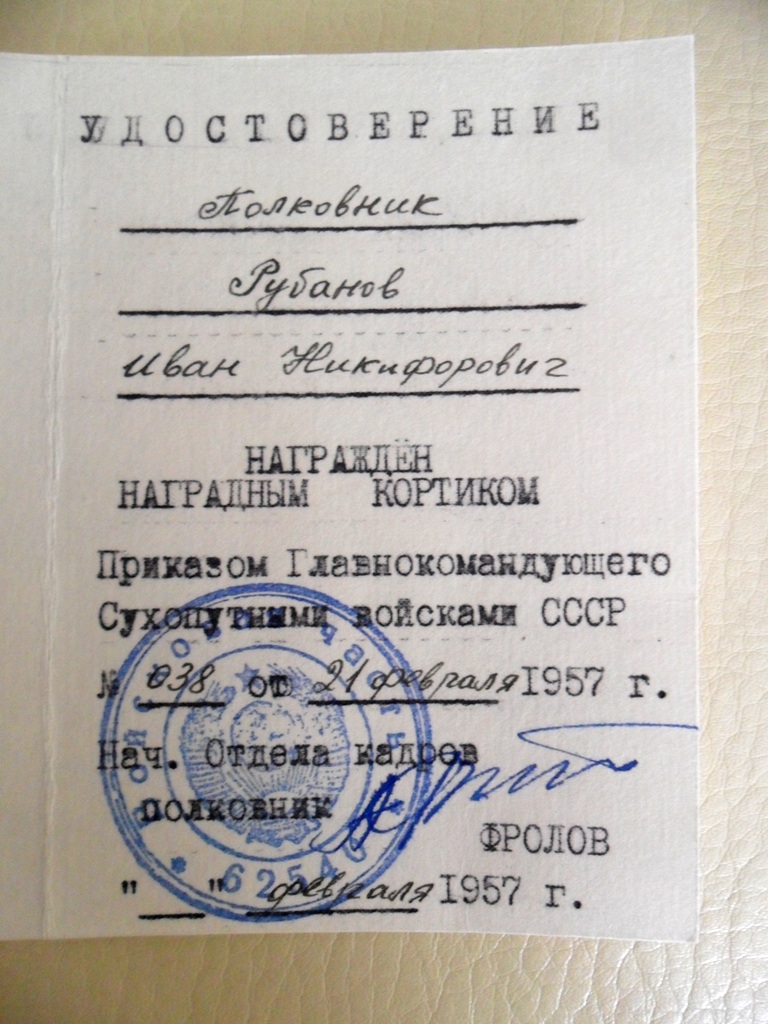 УДОСТОВЕРЕНИЕ
Полковник
Рубанов
Иван Никифорович
НАГРАЖДЁН
НАГРАДНЫМ КОРТИКОМ
Приказом Главнокомандующего
Сухопутными войсками СССР
№ 038 от 21 февраля 1957 г.
Нач. Отдела кадров
полковник
ФРОЛОВ
" " февраля 1957 г.